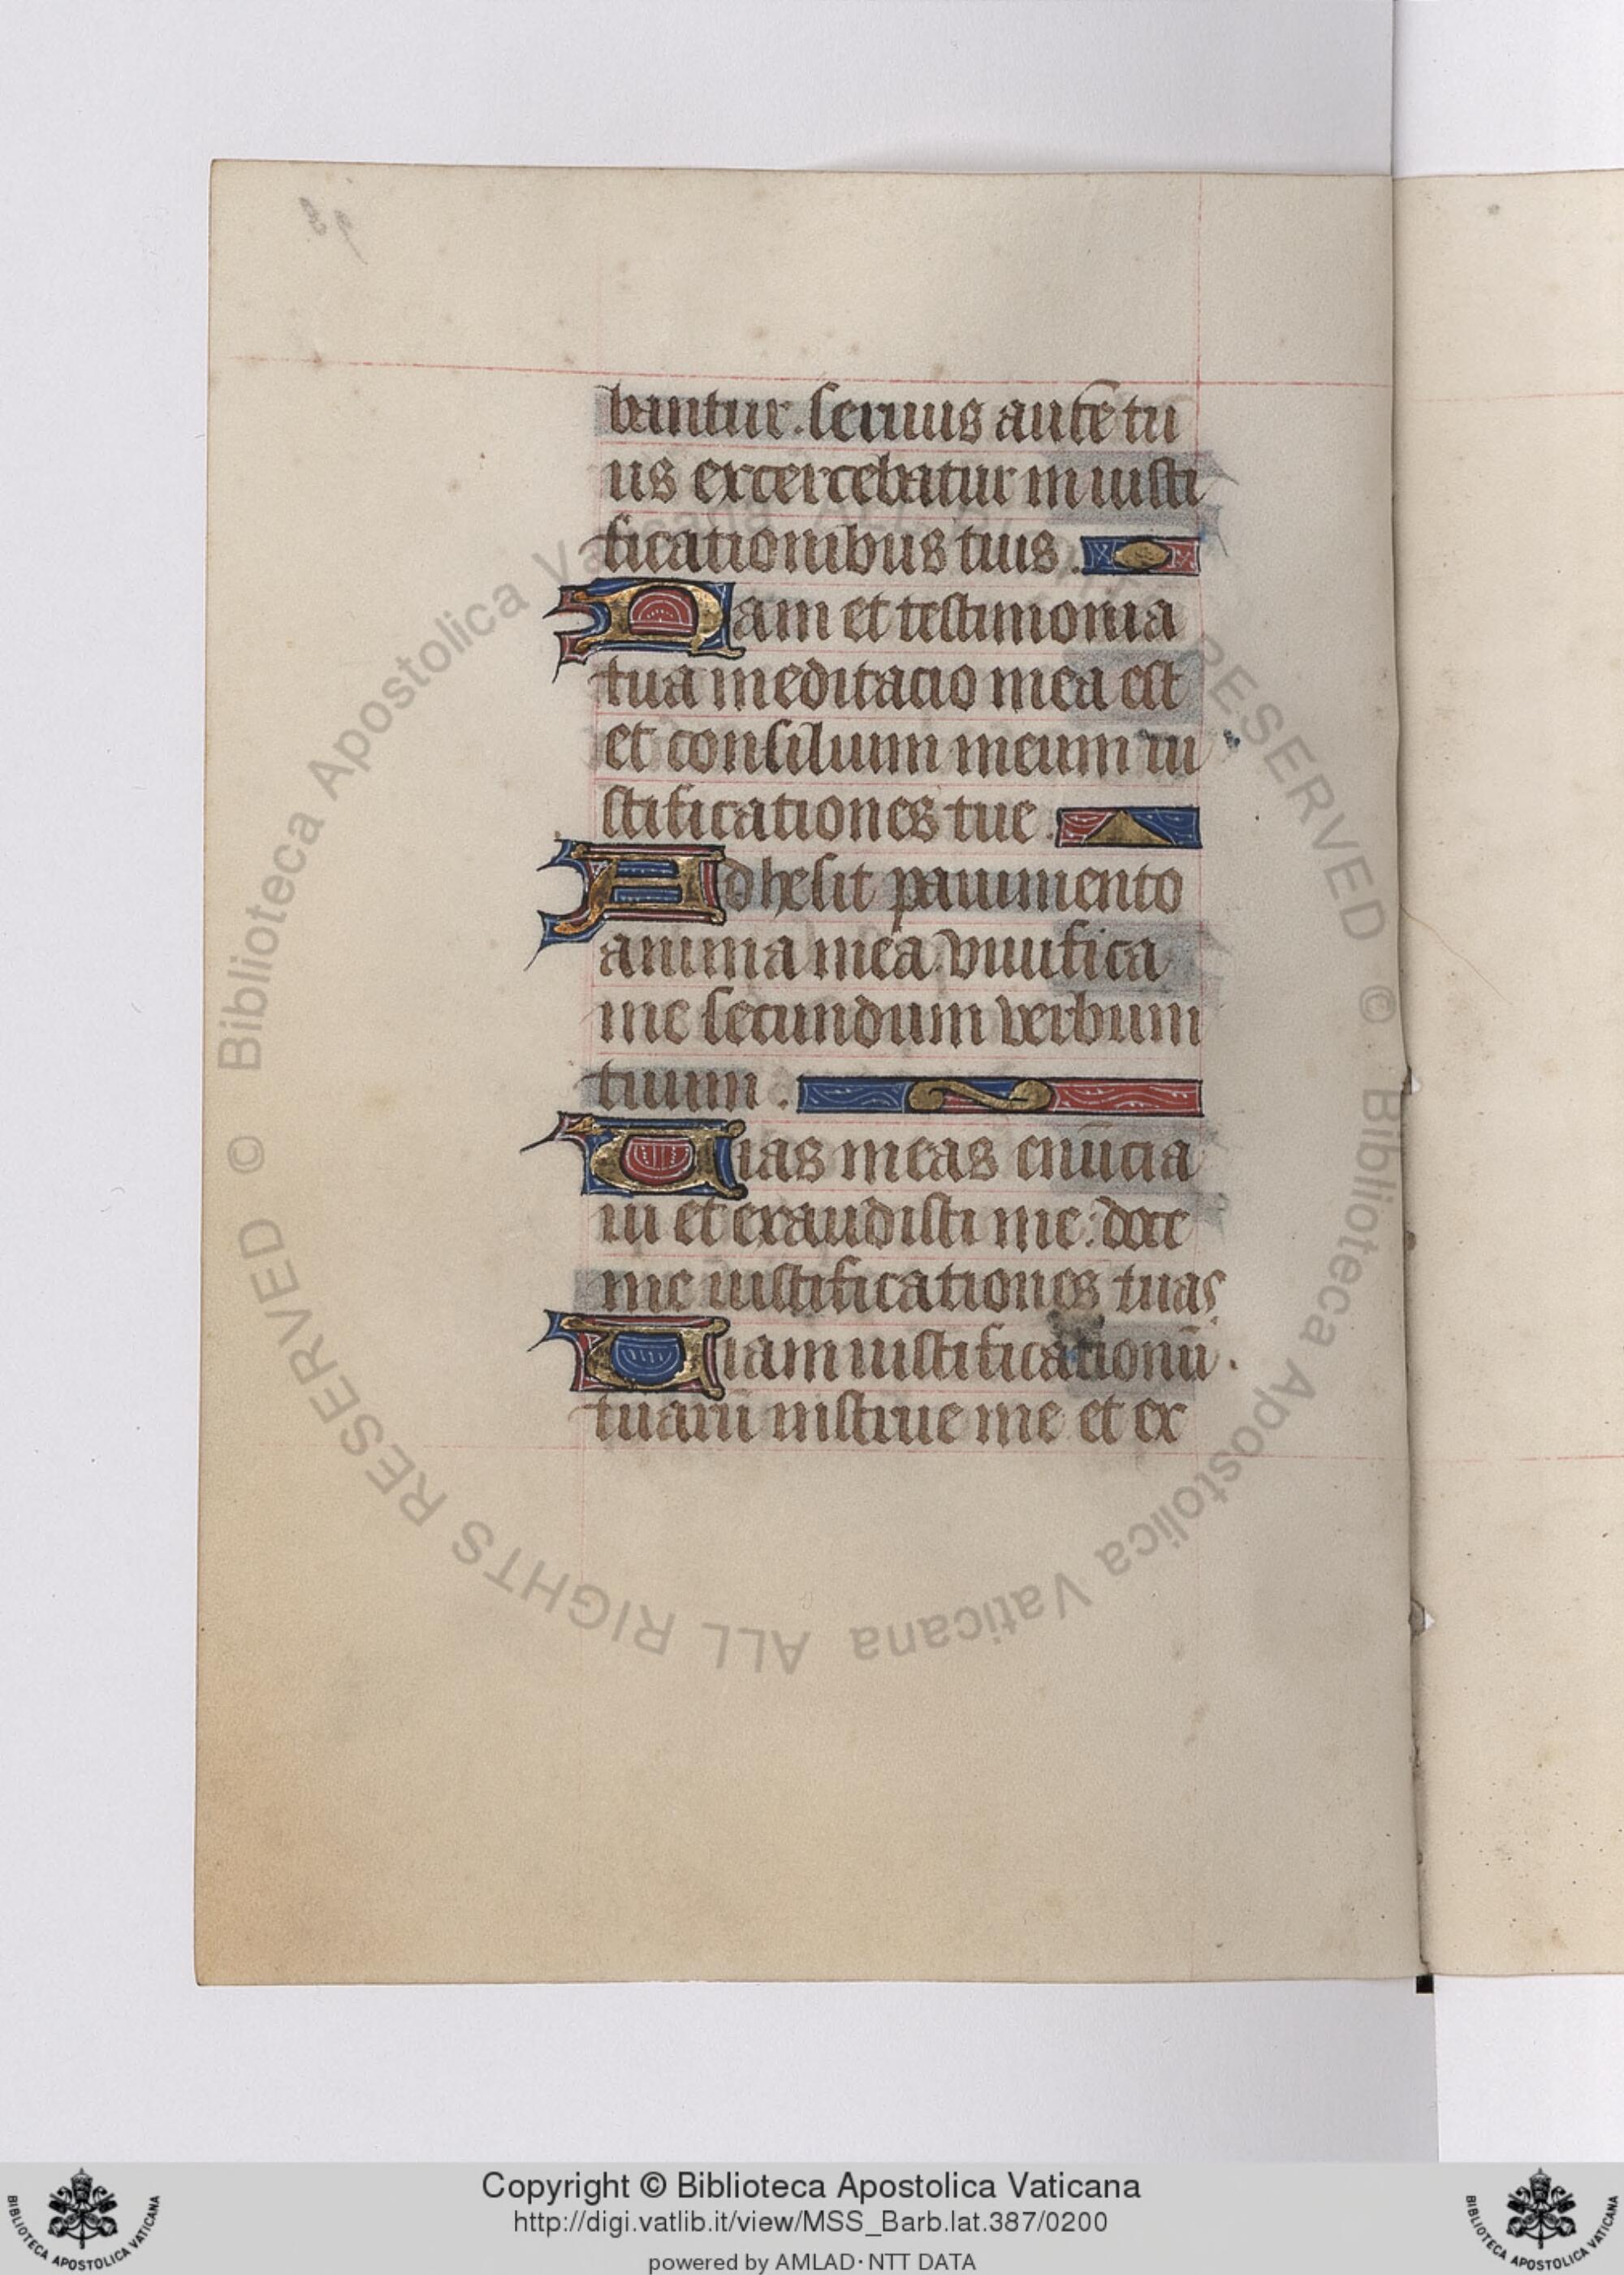 bantur. seruus autē tu
us excercebatur in iusti
ficationibus tuis.
Nam et testimonia
tua meditacio mea est
et consilium meum iu
stificationes tue.
Adhesit pauimento
anima mea. viuifica
me secundum verbum
tuum.
Uias meas enūcia
ui et exaudisti me: doce
me iustificationes tuas
Uiam iustificationū.
tuarū instrue me et ex
© Biblioteca Apostolica Vaticana ALL RIGHTS RESERVED © Biblioteca Apostolica Vaticana ALL RIGHTS RESERVED
BIBLIOTECA APOSTOLICA VATICANA
Copyright © Biblioteca Apostolica Vaticana
http://digi.vatlib.it/view/MSS_Barb.lat.387/0200
powered by AMLAD·NTT DATA
BIBLIOTECA APOSTOLICA VATICANA